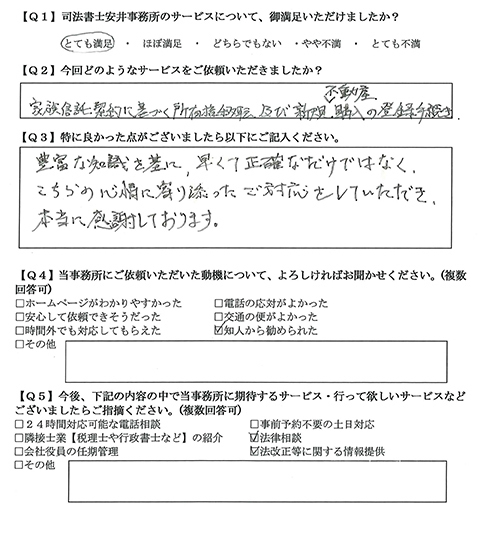 【Q1】司法書士安井事務所のサービスについて、御満足いただけましたか？
とても満足 ・ ほぼ満足 ・ どちらでもない ・やや不満 ・ とても不満
【Q2】今回どのようなサービスをご依頼いただきましたか？
不動産
家族信託契約に基づく所有権移転 及び 新規 購入の登録手続き.
【Q3】特に良かった点がございましたら以下にご記入ください。
豊富な知識を基に、早くて正確なだけではなく、
こちらの心情に寄り添ったご対応をしていただき、
本当に感謝しております。
【Q4】当事務所にご依頼いただいた動機について、よろしければお聞かせください。(複数
回答可)
□ホームページがわかりやすかった □電話の応対がよかった
□安心して依頼できそうだった □交通の便がよかった
□時間外でも対応してもらえた ☑知人から勧められた
□その他
【Q5】今後、下記の内容の中で当事務所に期待するサービス・行って欲しいサービスなど
ございましたらご指摘ください。(複数回答可)
□24時間対応可能な電話相談 □事前予約不要の土日対応
□隣接士業【税理士や行政書士など】の紹介 ☑法律相談
□会社役員の任期管理 ☑法改正等に関する情報提供
□その他